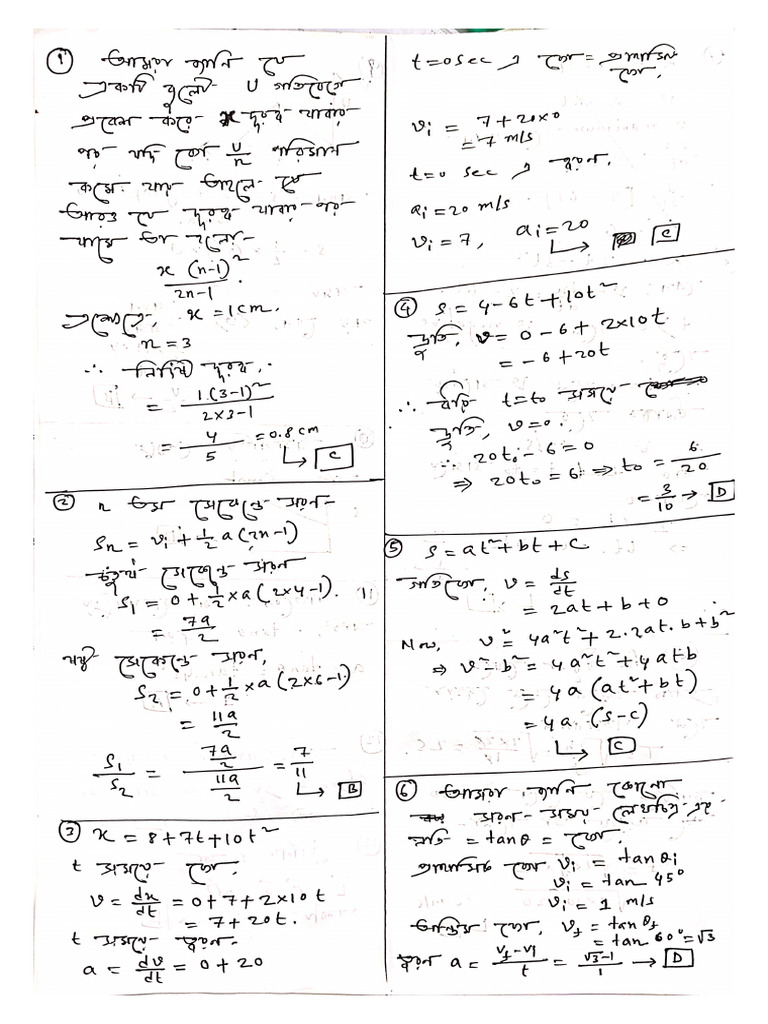 ① আমরা জানি যে
একটি বুলেট U গতিবেগে
প্রবেশ করে x দূরত্ব যাবার
পর যদি বেগ U/n পরিমান
কমে যায় তাহলে
আরও যে দূরত্ব যাবার পর
থামবে তা হলো-
x (n-1)² / 2n-1
এক্ষেত্রে, x = 1cm.
n = 3
∴ নির্ণেয় দূরত্ব,
= 1.(3-1)² / 2×3-1
= 4/5 = 0.8 cm
↳ C
② n তম সেকেন্ডে সরণ-
Sn = vi + 1/2 a(2n-1)
চতুর্থ সেকেন্ডে সরণ
S1 = 0 + 1/2 × a (2×4-1).
= 7a/2
ষষ্ঠ সেকেন্ডে সরণ,
S2 = 0 + 1/2 × a (2×6-1)
= 11a/2
S1/S2 = 7a/2 / 11a/2 = 7/11
↳ B
③ x = 8+7t+10t²
t সময়ে বেগ.
v = dx/dt = 0+7+2×10t
= 7+20t.
t সময়ে ত্বরণ.
a = dv/dt = 0+20
t=0sec এ বেগ = প্রাথমিক
বেগ.
vi = 7+20×0
= 7 m/s
t=0 sec এ ত্বরণ.
ai=20 m/s
vi=7, ai=20
↳ C
④ S = 4-6t+10t²
দ্রুতি, v = 0-6+2×10t
= -6+20t
∴ ধরি t=t0 সময়ে
দ্রুতি, v=0.
∴ 20t0-6=0
⇒ 20t0=6 ⇒ t0 = 6/20
= 3/10 → D
⑤ S = at²+bt+c
গতিবেগ, v = ds/dt
= 2at+b+0
Now, v² = 4a²t²+2.2at.b+b²
⇒ v²-b² = 4a²t²+4atb
= 4a(at²+bt)
= 4a.(s-c)
↳ C
⑥ আমরা জানি কোনো
সরণ-সময় লেখচিত্র এর
নতি = tanθ = বেগ.
প্রাথমিক বেগ vi = tanθi
vi = tan 45°
vi = 1 m/s
অন্তিম বেগ, vf = tanθf
= tan 60° = √3
ত্বরণ a = vf-vi / t = √3-1 / 1 → D